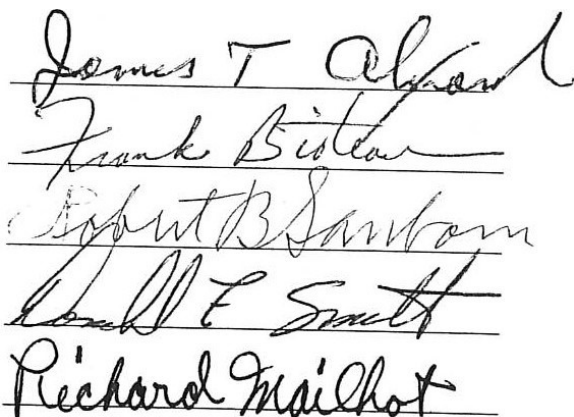 James T Alford
Frank Bideau
Robert B Sanborn
Donald E Smith
Richard Mailhot